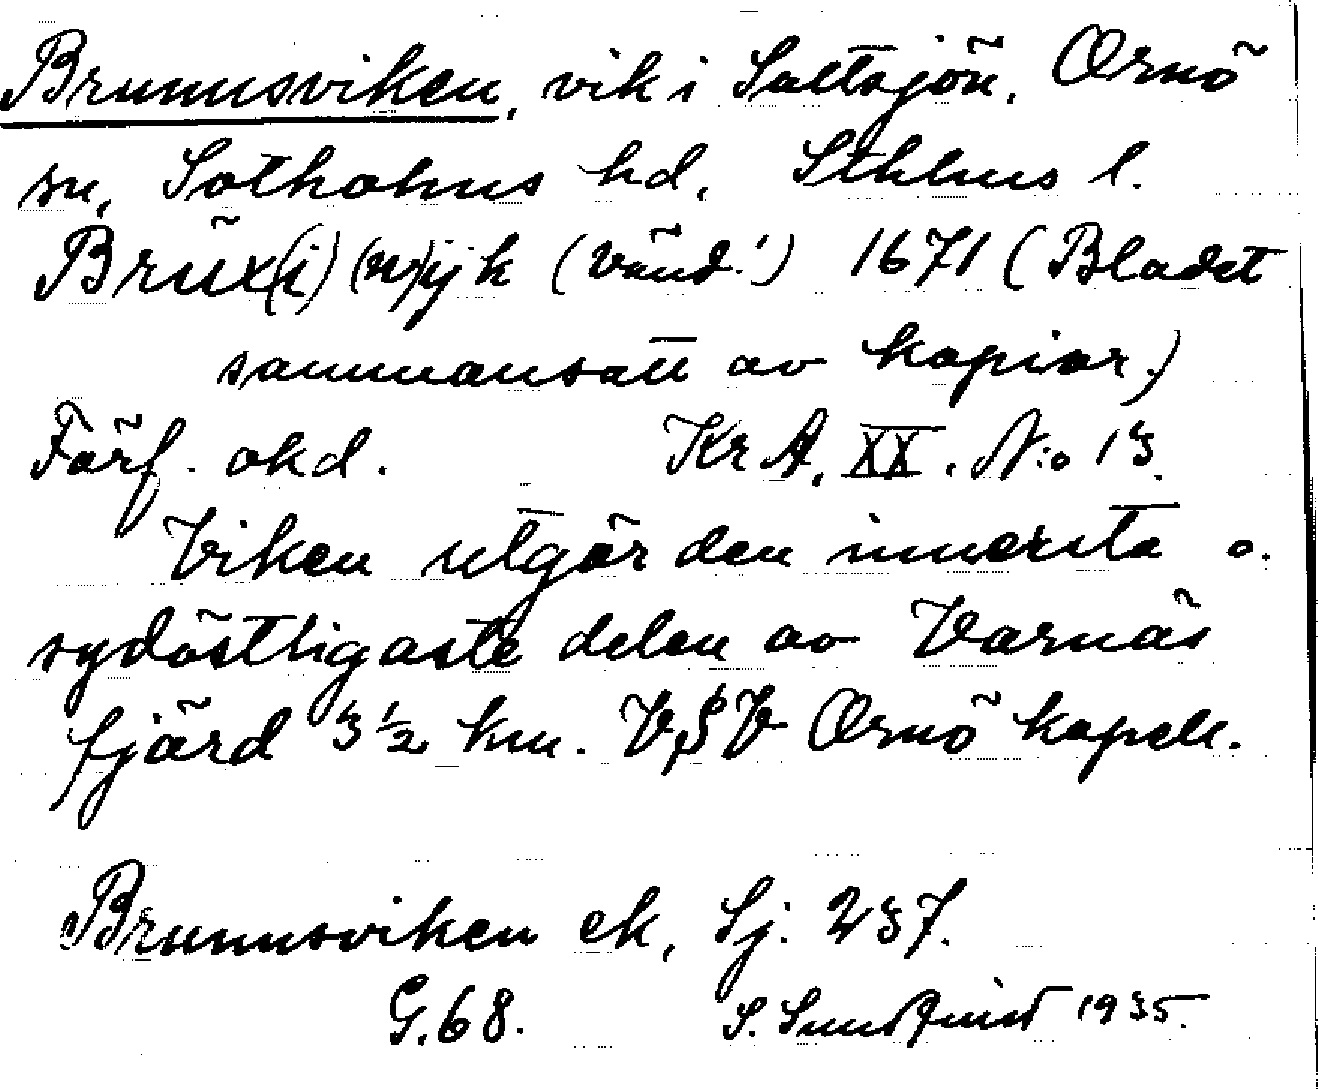 Brunnsviken, vik i Saltsjön, Ornö
sn, Sotholms hd, Sthlms l.
Brüx(i) (w)ijk (Vänd!) 1671 (Bladet
sammansatt av kopior.)
Förf. okd. KrA. XX. N:o 13.
Viken utgör den innersta o.
sydöstligaste delen av Varnäs
fjärd 3 1/2 km. VSV Ornö kapell.
Brunnsviken ek, Sj. 237.
G.68. S. Sundquist 1935.